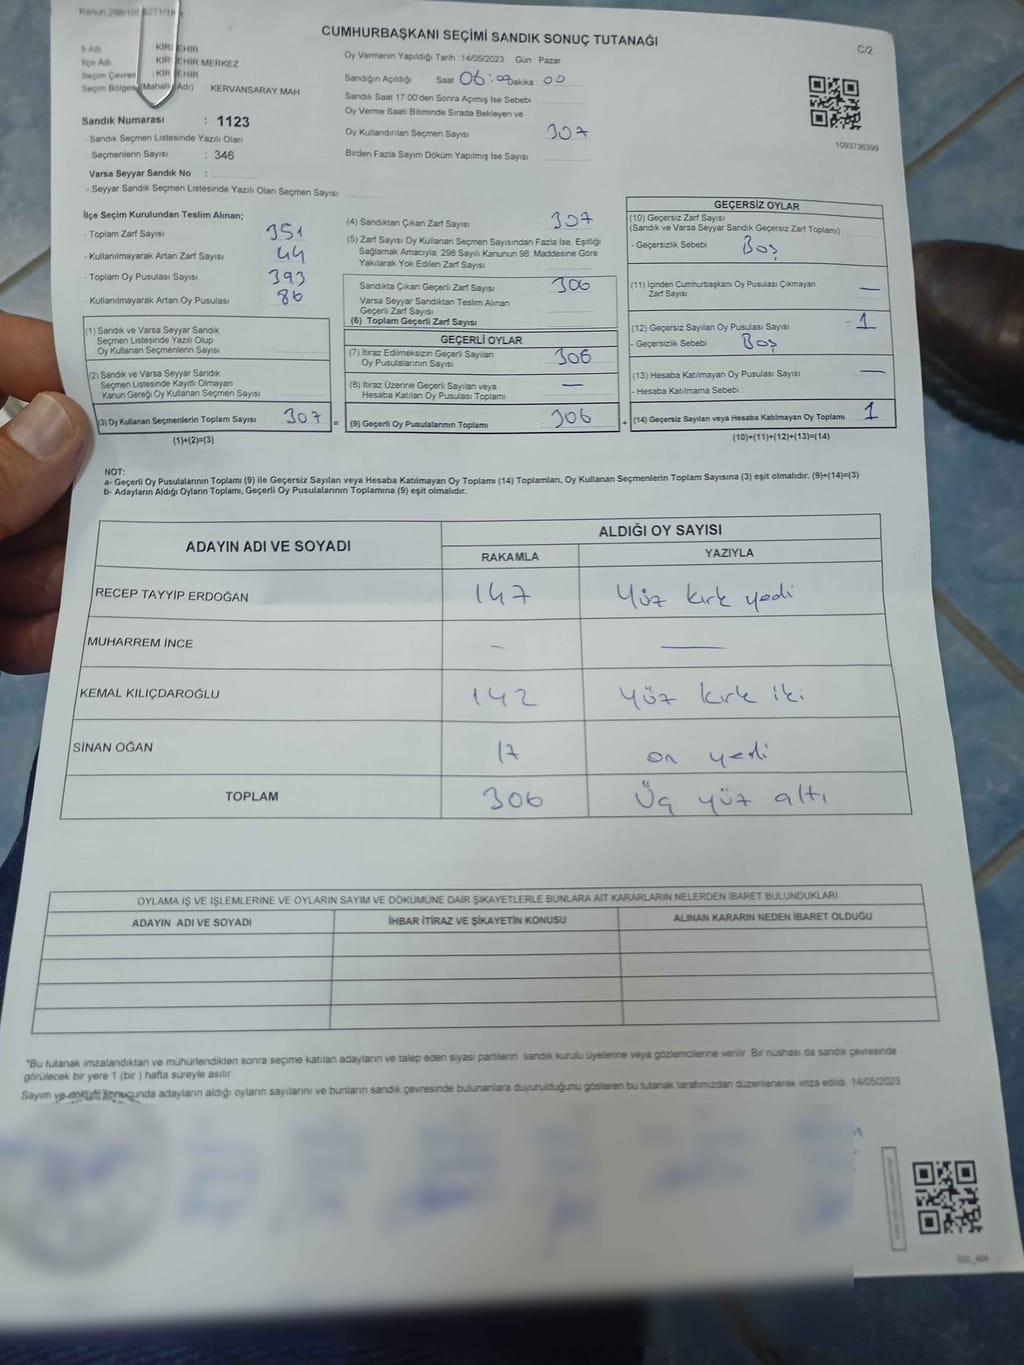 CUMHURBAŞKANI SEÇİMİ SANDIK SONUÇ TUTANAĞI
C/2
İl Adı : KIRŞEHİR
İlçe Adı : KIRŞEHİR MERKEZ
Seçim Çevresi : KIRŞEHİR
Seçim Bölgesi (Mahalle Adı) KERVANSARAY MAH
Sandık Numarası : 1123
- Sandık Seçmen Listesinde Yazılı Olan
Seçmenlerin Sayısı : 346
Varsa Seyyar Sandık No :
- Seyyar Sandık Seçmen Listesinde Yazılı Olan Seçmen Sayısı
Oy Vermenin Yapıldığı Tarih :14/05/2023 Gün : Pazar
Sandığın Açıldığı Saat 06:00 Dakika : 00
Sandık Saat 17:00'den Sonra Açımış İse Sebebi :
Oy Verme Saati Bitiminde Sırada Bekleyen ve
Oy Kullandırılan Seçmen Sayısı : 307
Birden Fazla Sayım Döküm Yapılmış İse Sayısı :
1093736399
İlçe Seçim Kurulundan Teslim Alınan;
- Toplam Zarf Sayısı : 351
- Kullanılmayarak Artan Zarf Sayısı : 44
- Toplam Oy Pusulası Sayısı : 393
- Kullanılmayarak Artan Oy Pusulası : 86
(1) Sandık ve Varsa Seyyar Sandık
Seçmen Listesinde Yazılı Olup
Oy Kullanan Seçmenlerin Sayısı
(2) Sandık ve Varsa Seyyar Sandık
Seçmen Listesinde Kayıtlı Olmayan
Kanun Gereği Oy Kullanan Seçmen Sayısı
(3) Oy Kullanan Seçmenlerin Toplam Sayısı 307 =
(1)+(2)=(3)
(4) Sandıktan Çıkan Zarf Sayısı : 307
(5) Zarf Sayısı Oy Kullanan Seçmen Sayısından Fazla İse, Eşitliği
Sağlamak Amacıyla; 298 Sayılı Kanunun 98. Maddesine Göre
Yakılarak Yok Edilen Zarf Sayısı :
Sandıkta Çıkan Geçerli Zarf Sayısı : 306
Varsa Seyyar Sandıktan Teslim Alınan
Geçerli Zarf Sayısı :
(6) Toplam Geçerli Zarf Sayısı
GEÇERLİ OYLAR
(7) İtiraz Edilmeksizin Geçerli Sayılan
Oy Pusulalarının Sayısı : 306
(8) İtiraz Üzerine Geçerli Sayılan veya
Hesaba Katılan Oy Pusulaları Toplamı : —
(9) Geçerli Oy Pusulalarının Toplamı 306 +
GEÇERSİZ OYLAR
(10) Geçersiz Zarf Sayısı
(Sandık ve Varsa Seyyar Sandık Geçersiz Zarf Toplamı)
- Geçersizlik Sebebi : Boş
(11) İçinden Cumhurbaşkanı Oy Pusulası Çıkmayan
Zarf Sayısı —
(12) Geçersiz Sayılan Oy Pusulası Sayısı : 1
- Geçersizlik Sebebi : Boş
(13) Hesaba Katılmayan Oy Pusulası Sayısı : —
- Hesaba Katılmama Sebebi :
(14) Geçersiz Sayılan veya Hesaba Katılmayan Oy Toplamı 1
(10)+(11)+(12)+(13)=(14)
NOT:
a- Geçerli Oy Pusulalarının Toplamı (9) ile Geçersiz Sayılan veya Hesaba Katılmayan Oy Toplamı (14) Toplamları, Oy Kullanan Seçmenlerin Toplam Sayısına (3) eşit olmalıdır. (9)+(14)=(3)
b- Adayların Aldığı Oyların Toplamı, Geçerli Oy Pusulalarının Toplamına (9) eşit olmalıdır.
ADAYIN ADI VE SOYADI
ALDIĞI OY SAYISI
RAKAMLA YAZIYLA
RECEP TAYYİP ERDOĞAN 147 Yüz kırk yedi
MUHARREM İNCE - —
KEMAL KILIÇDAROĞLU 142 Yüz kırk iki
SİNAN OĞAN 17 on yedi
TOPLAM 306 Üç yüz altı
OYLAMA İŞ VE İŞLEMLERİNE VE OYLARIN SAYIM VE DÖKÜMÜNE DAİR ŞİKAYETLERLE BUNLARA AİT KARARLARIN NELERDEN İBARET BULUNDUKLARI
ADAYIN ADI VE SOYADI İHBAR İTİRAZ VE ŞİKAYETİN KONUSU ALINAN KARARIN NEDEN İBARET OLDUĞU
*Bu tutanak imzalandıktan ve mühürlendikten sonra seçime katılan adayların ve talep eden siyasi partilerin sandık kurulu üyelerine veya gözlemcilerine verilir. Bir nüshası da sandık çevresinde
görülecek bir yere 1 (bir ) hafta süreyle asılır.
Sayım ve döküm sonucunda adayların aldığı oyların sayılarını ve bunların sandık çevresinde bulunanlara duyurulduğunu gösteren bu tutanak tarafımızdan düzenlenerek imza edildi. 14/05/2023